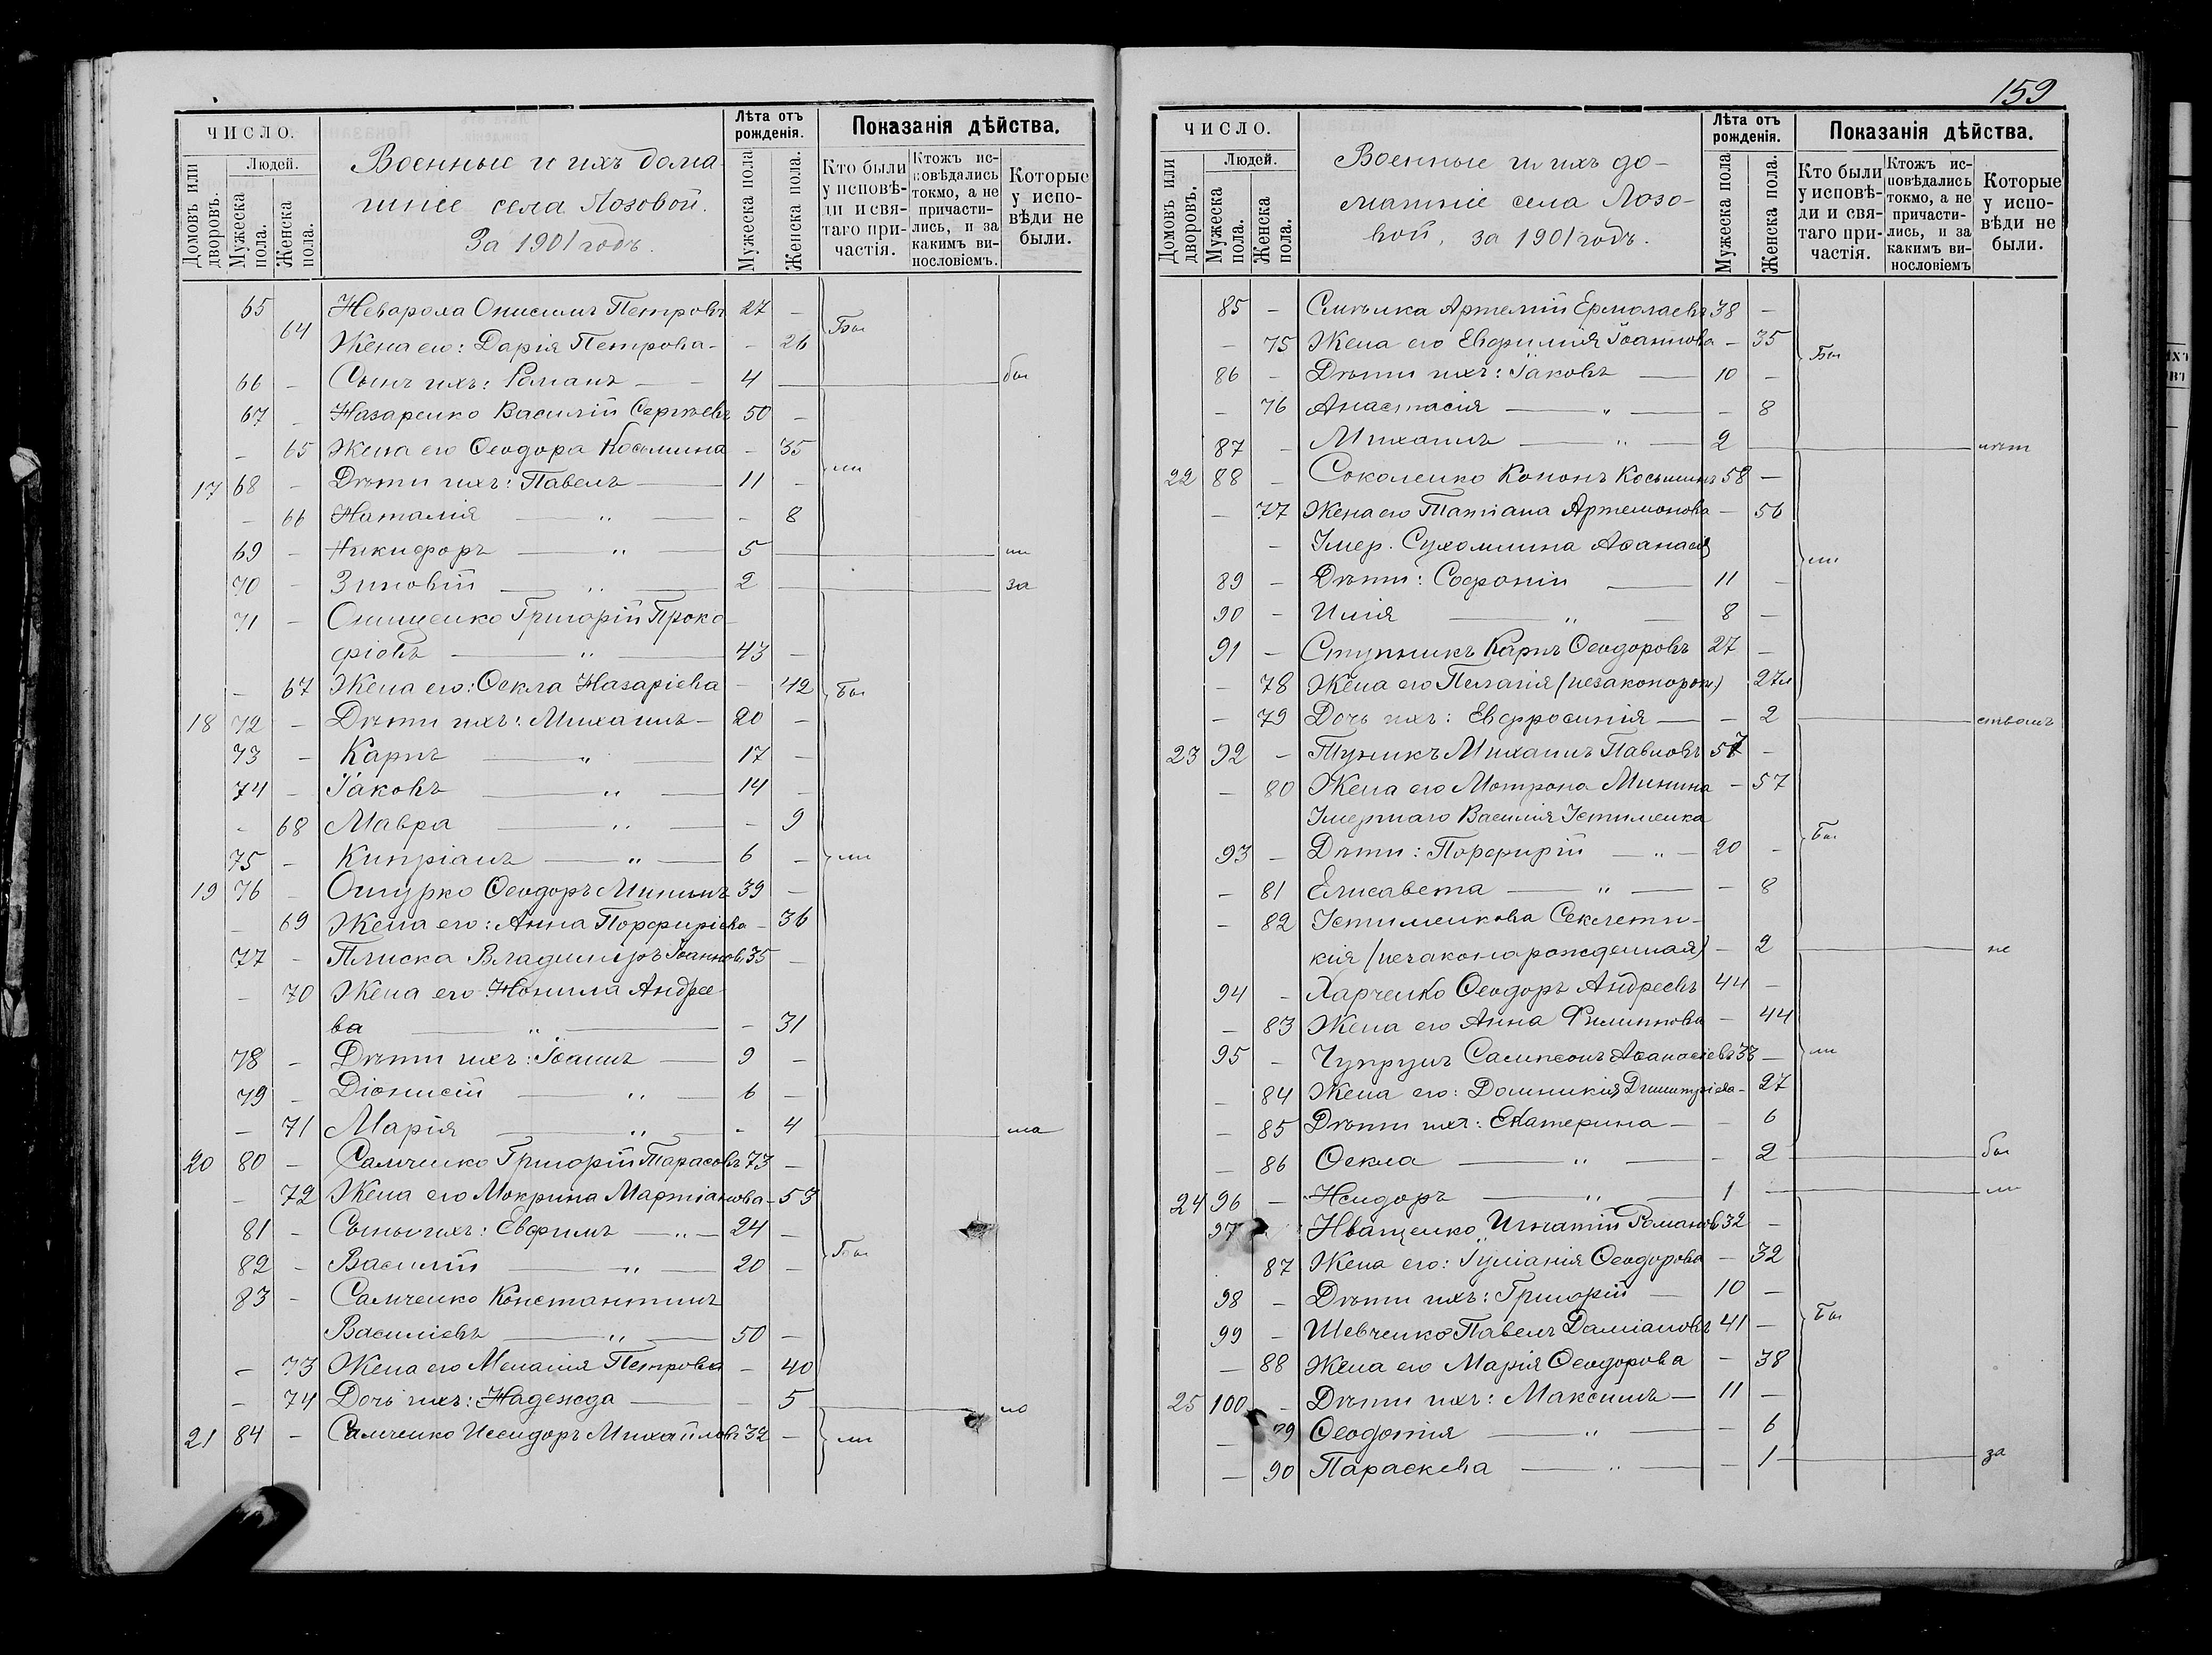 ЧИСЛО.
Домовъ или дворовъ.
Людей.
Мужеска пола.
Женска пола.
Военные и ихъ дома-
шніе села Лозовой.
За 1901 годъ.
Лѣта отъ рожденія.
Мужеска пола
Женска пола.
Показанія дѣйства.
Кто были у исповѣ-ди и свя-таго при-частія.
Ктожъ ис-повѣдались токмо, а не причасти-лись, и за какимъ ви-нословіемъ.
Которые у испо-вѣди не были.
65 Неварока Онисимъ Петровъ 27 –
64 Жена его: Дарія Петрова – – 26 Бы
66 – Сынъ ихъ: Романъ – – 4 бы
67 – Назаренко Василій Сергѣевъ 50 –
– 65 Жена его Ѳеодора Косьмина – 35
17 68 – Дѣти ихъ: Павелъ – 11 – ли
– 66 Наталія – „ – – 8
69 – Никифоръ – „ – 5 ли
70 – Зиновій – „ – 2 за
71 – Онищенко Григорій Проко-
фіевъ – „ – 43 –
– 67 Жена его: Ѳекла Назаріева – 42 Бы
18 72 – Дѣти ихъ: Михаилъ – 20 –
73 – Карпъ – „ – 17 –
74 – Іаковъ – „ – 14 –
– 68 Мавра – „ – – 9
75 – Кипріанъ – „ – 6 – ли
19 76 – Ошурко Ѳеодоръ Мининъ 39 –
– 69 Жена его: Анна Порфиріева – 36
77 – Плиска Владиміръ Іоанновъ 35 –
– 70 Жена его Нонила Андрее-
ва – „ – – 31
78 – Дѣти ихъ: Іоаннъ – 9 –
79 – Діонисій – „ – 6 –
– 71 Марія – „ – – 4 ма
20 80 – Самченко Григорій Тарасовъ 73 –
– 72 Жена его Мокрина Мартіанова – 53
81 – Сыны ихъ: Евфимъ – „ – 24 –
82 – Василій – „ – 20 – Бы
83 – Самченко Константинъ
Василіевъ – „ – 50 –
– 73 Жена его Меланія Петрова – 40
– 74 Дочь ихъ: Надежда – – 5 ло
21 84 – Самченко Исидоръ Михайловъ 32 – ли
159
ЧИСЛО.
Домовъ или дворовъ.
Людей.
Мужеска пола.
Женска пола.
Военные и ихъ до-
машніе села Лозо-
вой, за 1901 годъ.
Лѣта отъ рожденія.
Мужеска пола
Женска пола.
Показанія дѣйства.
Кто были у исповѣ-ди и свя-таго при-частія.
Ктожъ ис-повѣдались токмо, а не причасти-лись, и за какимъ ви-нословіемъ
Которые у испо-вѣди не были.
85 – Артемій Ермолаевъ 38 –
– 75 Жена его Евфимія Іоаннова – 35 Бы
86 – Дѣти ихъ: Іаковъ – 10 –
– 76 Анастасія – „ – – 8
87 – Михаилъ – „ – 2 лѣт
22 88 – Соколенко Кононъ Косьминъ 58 –
– 77 Жена его Татіана Артемонова – 56
– Умер. Сухомлина Аѳанасія ли
89 – Дѣти: Софоній – 11 –
90 – Илія – „ – 8 –
91 – Ступникъ Карпъ Ѳеодоровъ 27 –
– 78 Жена его Пелагія (незаконорож.) 27
– 79 Дочь ихъ: Евфросинія – – 2 ствомъ
23 92 – Тупикъ Михаилъ Павловъ 57 –
– 80 Жена его Мотрона Минина – 57
Умершаго Василія Устименка
93 – Дѣти: Порфирій – „ – 20 – Бы
– 81 Елисавета – „ – – 8
– 82 Устименкова Секлети-
кія (незаконарожденная) – 2 не
94 – Харченко Ѳеодоръ Андреевъ 44 –
– 83 Жена его Анна Филиппова – 44
95 – Чупрунъ Сампсонъ Аѳанасіевъ 33 – ли
– 84 Жена его: Домникія Димитріева – 27
– 85 Дѣти ихъ: Екатерина – – 6
– 86 Ѳекла – „ – – 2 бы
24 96 – Исидоръ – „ – 1 ли
97 Иващенко Игнатій Романовъ 32 –
87 Жена его: Іуліанія Ѳеодорова – 32
98 – Дѣти ихъ: Григорій – 10 –
99 – Шевченко Павелъ Даміановъ 41 – Бы
– 88 Жена его Марія Ѳеодорова – 38
25 100 – Дѣти ихъ: Максимъ – 11 –
– 89 Ѳеодотія – „ – – 6
– 90 Параскева – „ – – 1 за